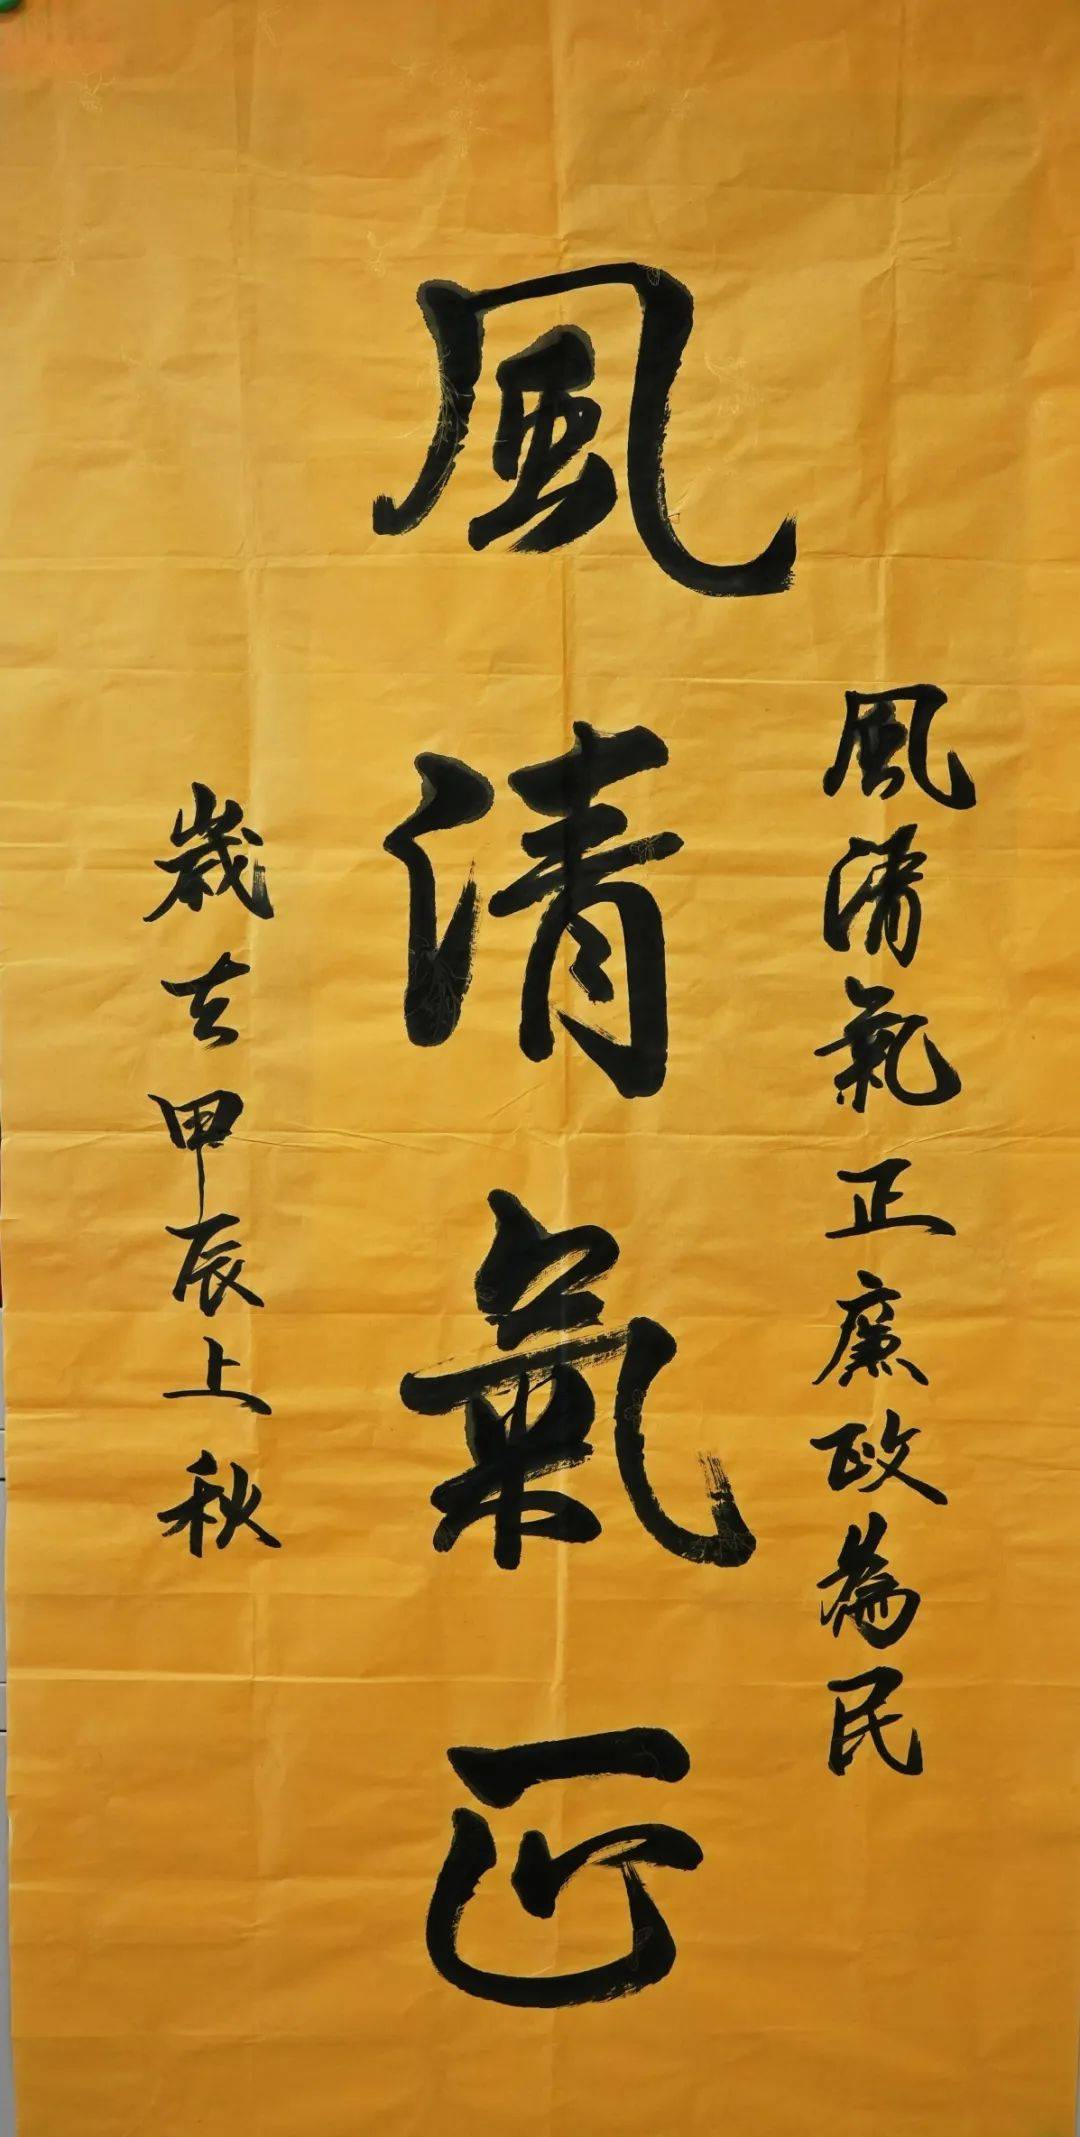 風清氣正廉政為民
風清氣正
歲在甲辰上秋